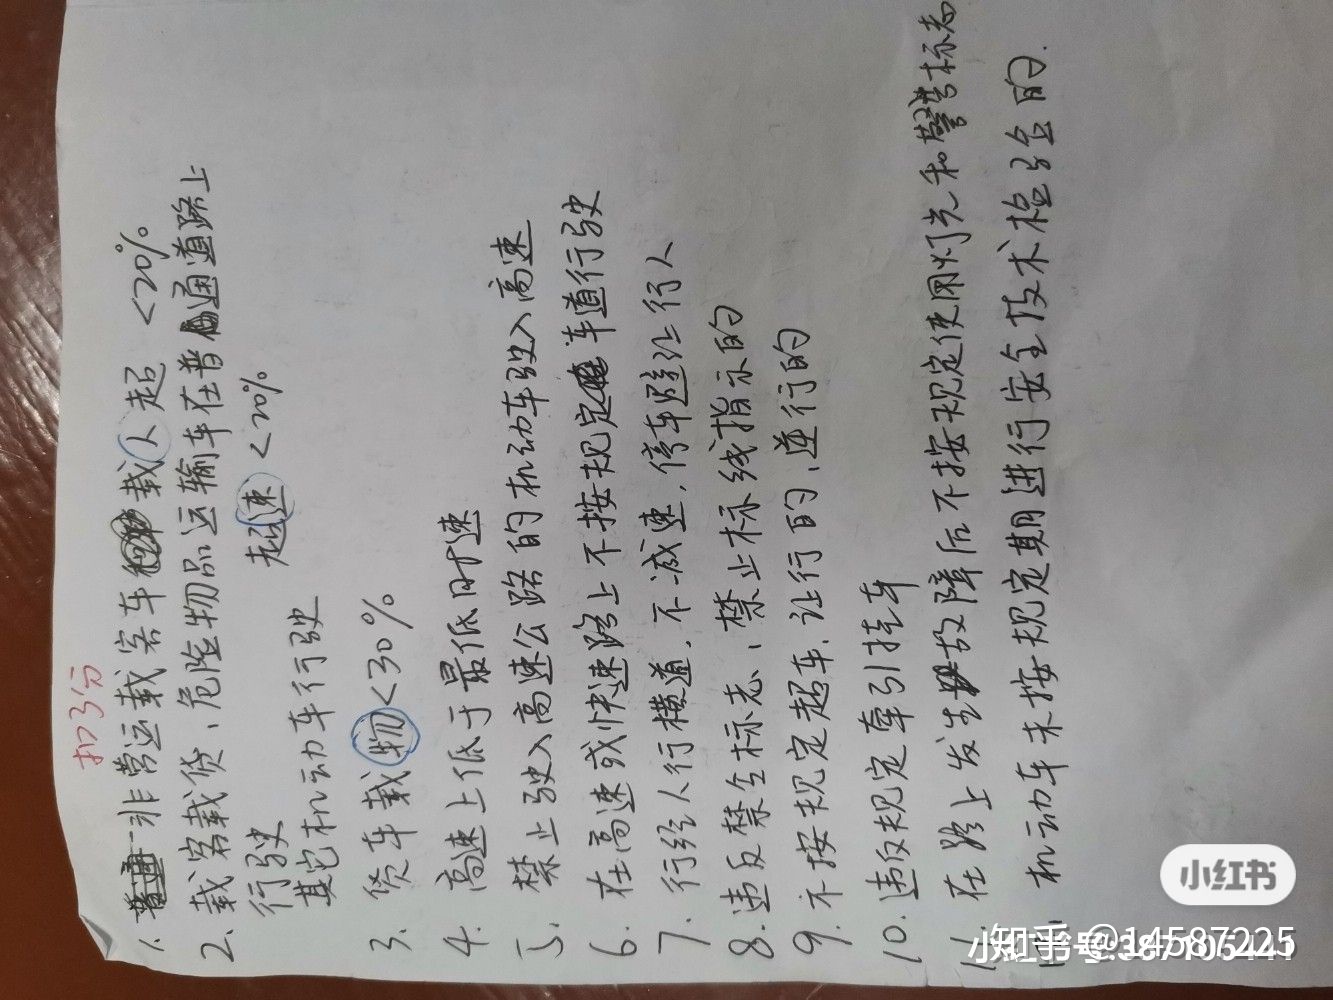 扣3分
1. 非营运载客车载人超 <20%
2. 载客载货、危险物品运输车在普通道路上
行驶 超速 <20%
其它机动车行驶
3. 货车载物<30%
4. 高速上低于最低时速
5. 禁止驶入高速公路的机动车驶入高速
6. 在高速或快速路上不按规定车道行驶
7. 行经人行横道,不减速,停车避让行人
8. 违反禁令标志,禁止标线指示的
9. 不按规定超车,让行的,逆行的
10. 违反规定牵引挂车
11. 在路上发生故障后不按规定使用灯光和警告标志
机动车未按规定期进行安全技术检验的.
小红书